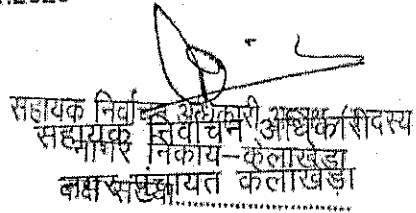 सहायक निर्वाचन अधिकारी अध्यक्ष/सदस्य
सहायक निर्वाचन अधिकारी
नागर निकाय-केलाखेड़ा
नगर पंचायत केलाखेड़ा
कक्ष संख्या